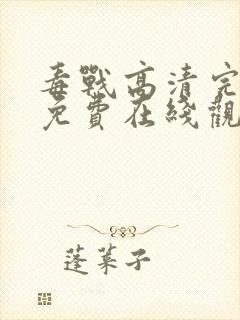 毒戰高清完
免費在綫觀
蓬萊子